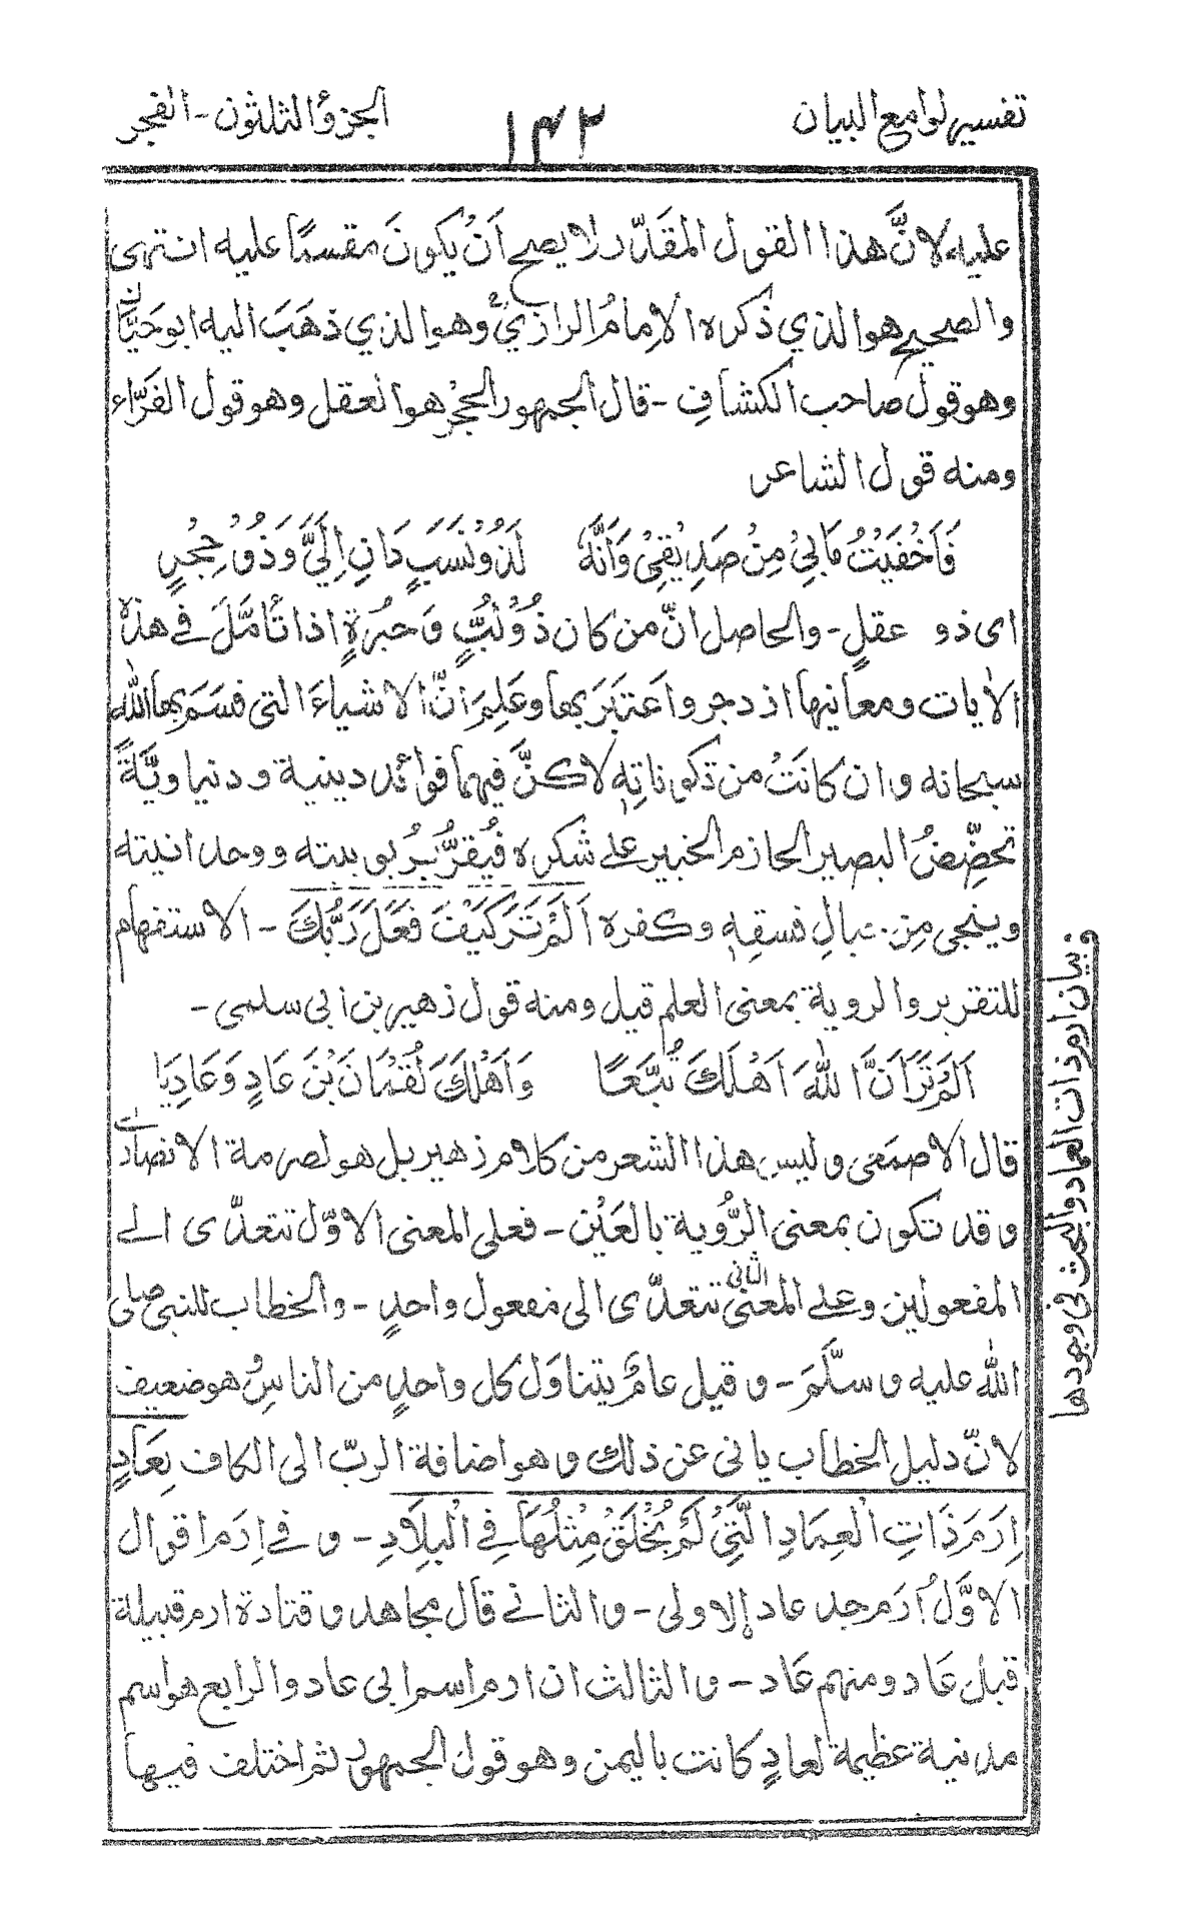 تفسير لوامع البيان
١٣٢
الجزؤ الثلثون - الفجر
عليه لانَّ هذا القول المقدّر لا يصح اَنْ يكونَ مقسمًا عليه انتهى
والصحيح هو الذي ذكره الاِمامُ الرازيُّ وهو الذي ذهَبَ اليه ابو حَيَّان
وهو قول صاحب الكشافِ - قال الجمهور الحِجْر هو العقل وهو قول الفَرَّاء
ومنه قول الشاعر
فَاَخْفَيْتُ مَابِيْ مِنْ صَدِيْقِيْ وَاَنَّهُ لَذُوْ نَسَبٍ دَانٍ اِلَيَّ وَذُوْ حِجْرٍ
اى ذو عقلٍ - والحاصل انّ من كان ذُوْلُبٍّ وَخبْرَةٍ اذا تَأمَّلَ فى هذه
الاٰيات ومعانيها ازدجر واعتبَرَ بها وعَلِمَ انّ الاشياءَ التى قسَمَ بها اللّٰه
سبحانه وان كانَتْ من تكوناتِهٖ لاكنَّ فيهما فوائد دينية ودنياويَّةً
تحضِّضُ البصير الحازم الخبير على شكره فيُقرُّ بربوبيته ووحدانيته
وينجى مِن وبالِ فسقِهٖ وكفره اَلَمْ تَرَ كَيْفَ فَعَلَ رَبُّكَ - الاستفهام
للتقرير والروية بمعنى العلم قيل ومنه قول زهير بن ابى سلمى -
اَلَمْ تَرَ اَنَّ اللّٰهَ اَهْلَكَ تُبَّعًا وَاَهْلَكَ لُقْمَانَ بْنَ عَادٍ وَعَادِيَا
قال الاصمعى وليس هذا الشعر من كلام زهير بل هو لصرمة الانصارى
وقد تكون بمعنى الرُّوية بالعَيْن - فعلى المعنى الاوّل تتعدّى الى
المفعولين وعلى المعنى الثانى تتعدّى الى مفعول واحدٍ - والخطاب للنبى صلى
اللّٰه عليه وسلَّمَ - وقيل عامٌّ يتناول كل واحدٍ من الناس وهو ضعيف
لانّ دليل الخطاب يابى عن ذلك وهو اضافة الربّ الى الكاف بِعَادٍ
اِرَمَ ذَاتِ الْعِمَادِ الَّتِىْ لَمْ يُخْلَقْ مِثْلُهَا فِى الْبِلَادِ - وفى اِرَم اقوال
الاوَّلُ اِرَم جد عاد الاولى - والثانى قال مجاهد وقتادة ارم قبيلة
قبل عاد ومنهم عَاد - والثالث ان ارم اسم ابى عاد والرابع هو اسم
مدينية عظيمة لعادٍ كانت باليمن وهو قول الجمهور ثم اختلف فيها
و بيان ارم ذات العماد والبحث فى وجودها